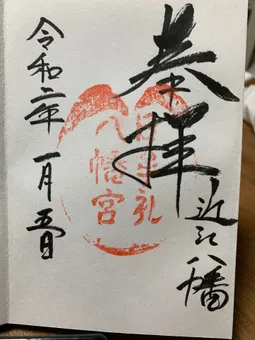 奉拝
近江八幡
日牟礼
八幡宮
令和二年一月五日